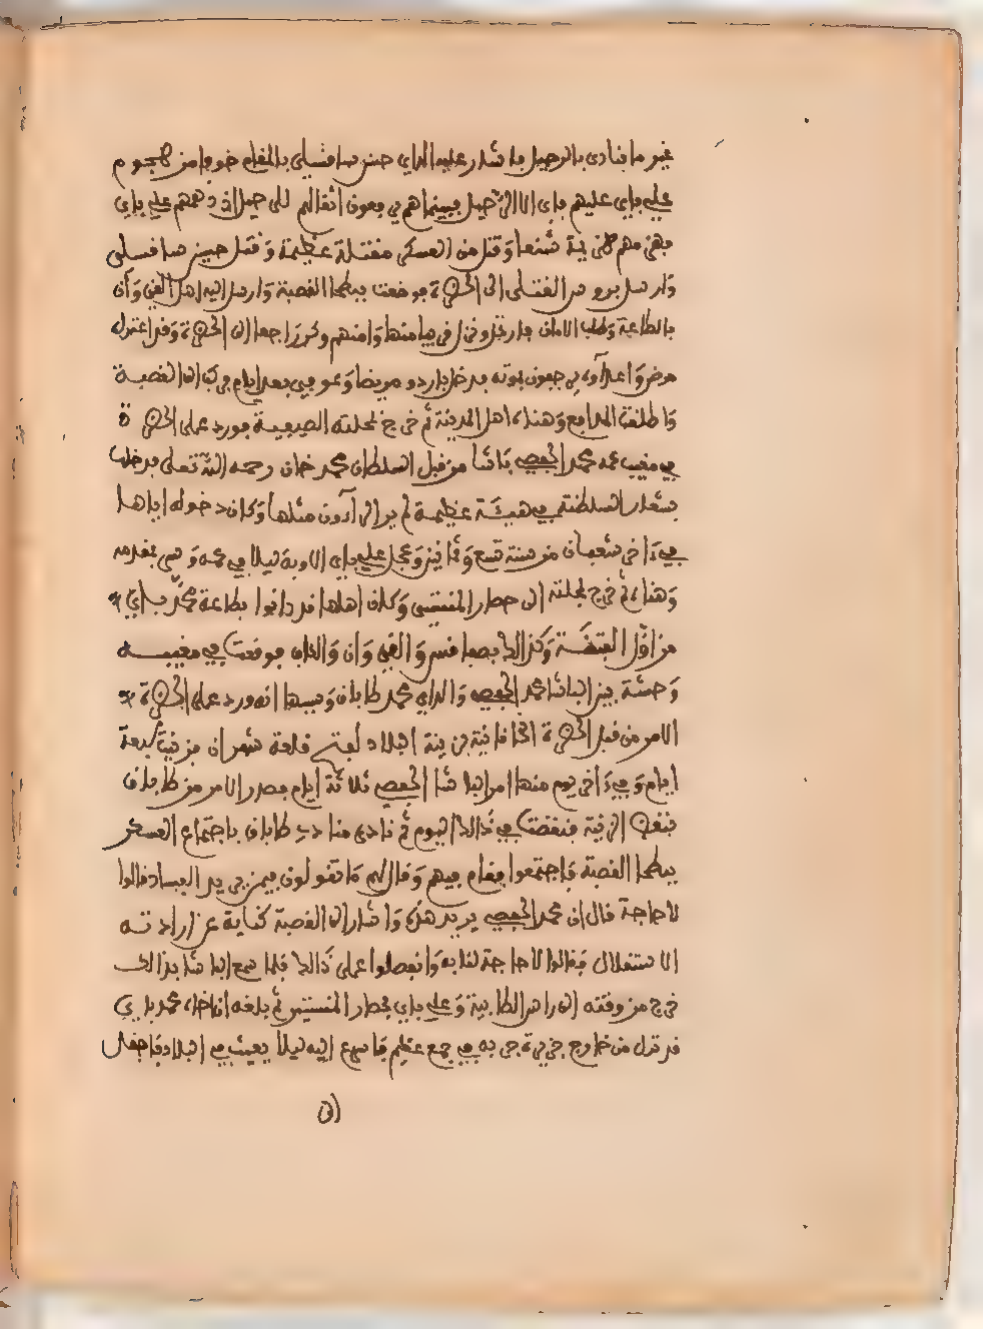 غير ما بنادي بالرحيل باشار عليه الداي حسن سافسلي بالمقام خوفا من هجوم
علي باي عليهم باي الا الرحيل فبينما هم يرفعون اثقالهم للرحيل اذ دهمهم علي باي
فهزمهم هزيمة شنعا وقتل من العسكر مقتلة عظيمة وقتل حسين سافسلي
وارسل بروس القتلى الى الحضرة فوضعت ببطحا القصبة وارسل اليه اهل القيروان
بالطاعة وطلب الامان فارتحل ونزل قريبا منها وامنهم وكر راجعا الى الحضرة وقد اعتراه
مرض واعداؤه يرجعون بموته فدخل باردو مريضا وعوفي بعد ايام فركب الى القصبة
واطلقت المدافع وهناه اهل المدينة ثم خرج لمحلته الصيفية فورد على الحضرة
في مغيبه عمه محمد الحفصي باشا من قبل السلطان محمد خان رحمه الله تعلى فدخلها
بشعار السلطنة في هيئة عظيمة لم ير الراءون مثلها وكان دخوله اياها
في ءاخر شعبان من سنة تسع وثمانين وعجل علي باي الاوبة ليلا في عمه وسر بمقدمه
وهناه ثم خرج لمحلته الى حصار المنستير وكان اهلها قد دانوا بطاعة محمد باي
من اول الفتنة وكذالك بصفاقس والقيروان والكاف فوقعت في مغيبه
وحشة بين الباشا محمد الحفصي والداي محمد طاباق وسببها انه ورد على الحضرة
الامر من قبل الحضرة الخاقانية بزينة البلاد لفتح قلعة شهران فزينت سبعة
ايام وفي ءاخر يوم منها امر الباشا الحفصي ثلاثة ايام فصدر الامر من طاباق
بنقض الزينة فنقضت في ذالك اليوم ثم نادى منادي طاباق باجتماع العسكر
ببطحا القصبة فاجتمعوا فقام فيهم وقال لهم ما تقولون فيمن يريد الفساد فقالوا
لا حاجة قال ان محمد الحفصي يريد هذه واشار الى القصبة كناية عن ارادته
الاستقلال فقالوا لا حاجة لنا به وانفصلوا على ذالك فلما سمع الباشا بذالك
خرج من وقته الى راس الطابية وعلي باي بحصار المنستير ثم بلغه ان اخاه محمد باي
قد نزل من خارج جزيرة جربة في جمع عظيم فاسرع اليه ليلا يعيث في البلاد فاجفل